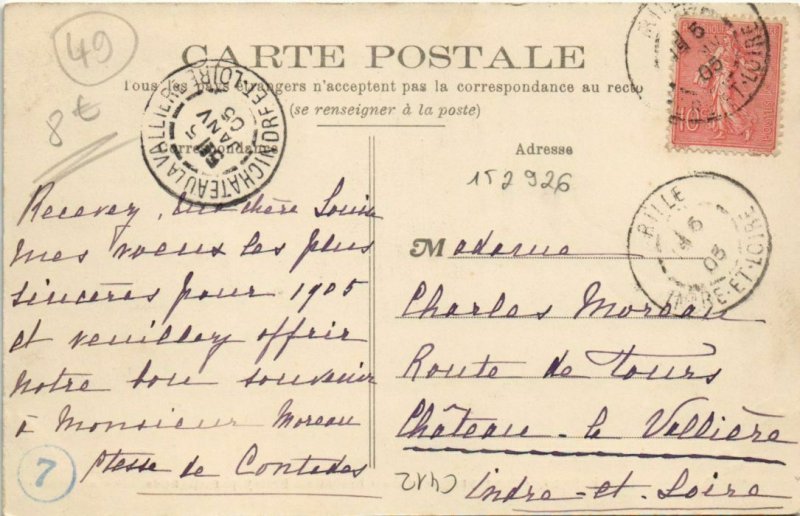 49
8€
CARTE POSTALE
Tous les pays étrangers n'acceptent pas la correspondance au recto
(se renseigner à la poste)
CHATEAU LA VALLIERE
JANV
05
Correspondance
Recevez, ma chère Louise
mes voeux les plus
sincères pour 1905
et veuillez offrir
notre bon souvenir
à Monsieur Moreau
Ctesse de Contades
7
RILLE
05
10
Adresse
152926
RILLE
6
05
INDRE-ET-LOIRE
Madame
Charles Moreau
Route de Tours
Château-la Vallière
Indre-et-Loire
C412